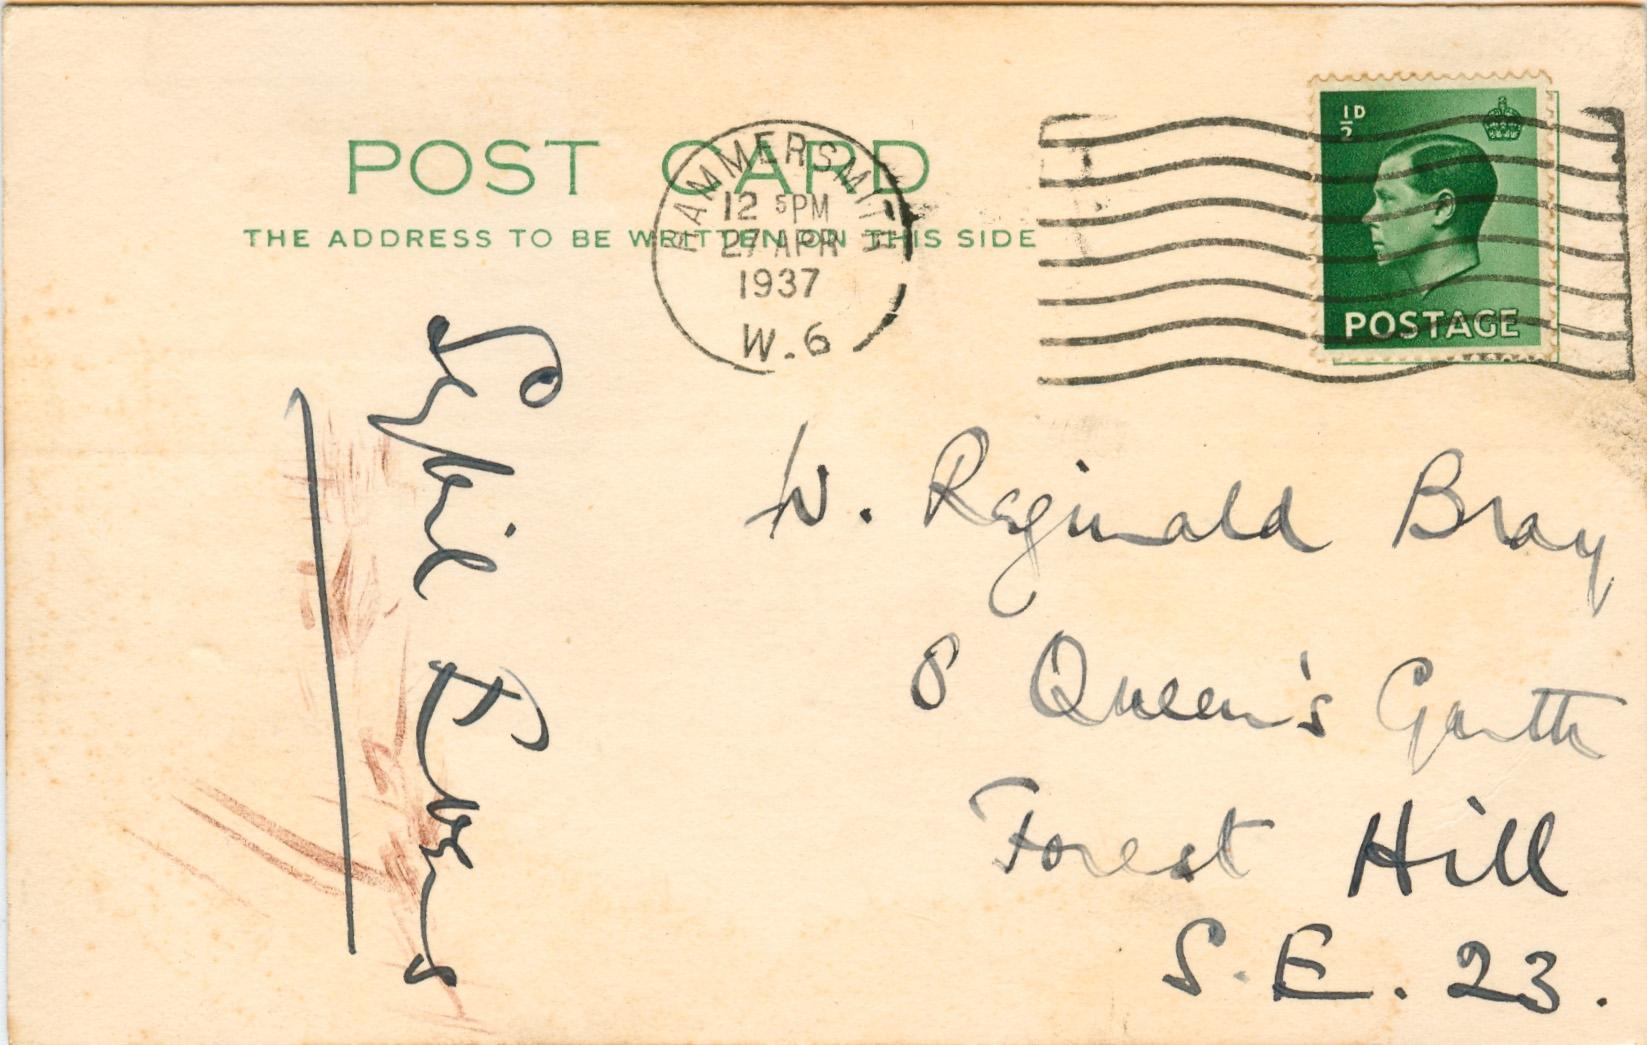 POST CARD
THE ADDRESS TO BE WRITTEN ON THIS SIDE
HAMMERSMITH
12 5PM
27 APR
1937
W.6
½D
POSTAGE
W. Reginald Bray
8 Queen's Garth
Forest Hill
S.E. 23.
Sybil Evans